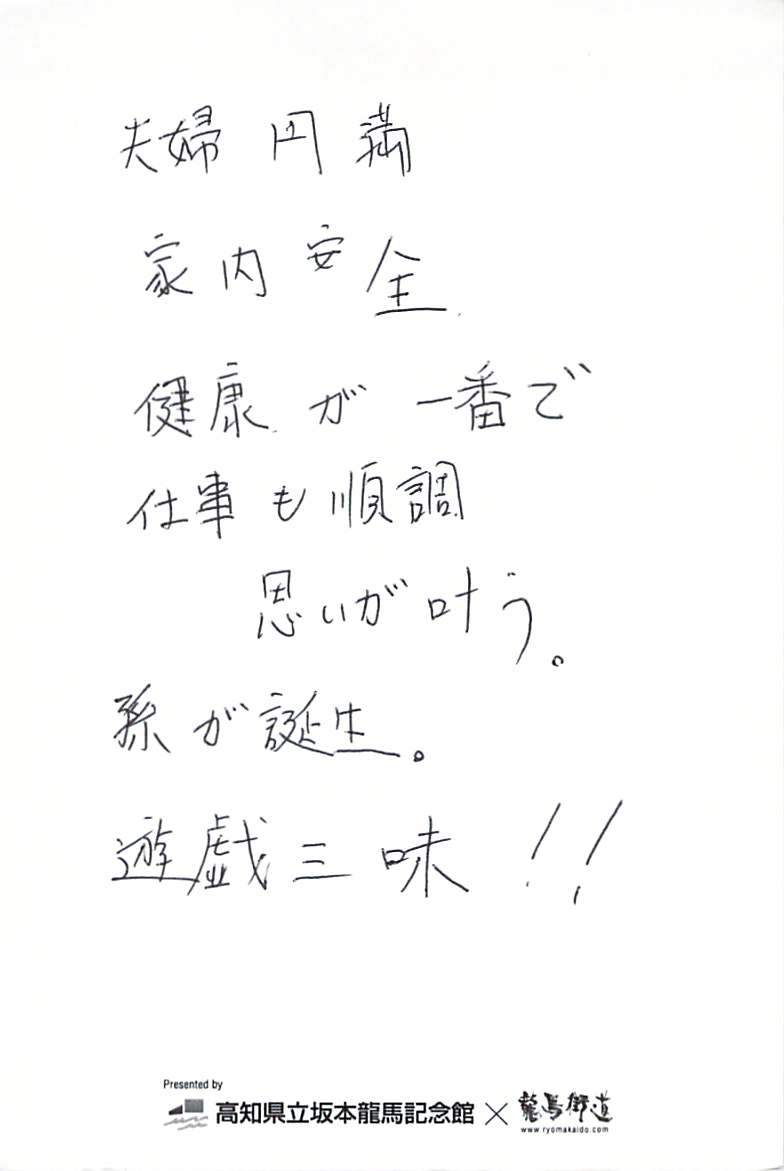 夫婦円満
家内安全
健康が一番で
仕事も順調
思いが叶う。
孫が誕生。
遊戯三味!!
Presented by
高知県立坂本龍馬記念館×龍馬街道
www.ryomakaido.com